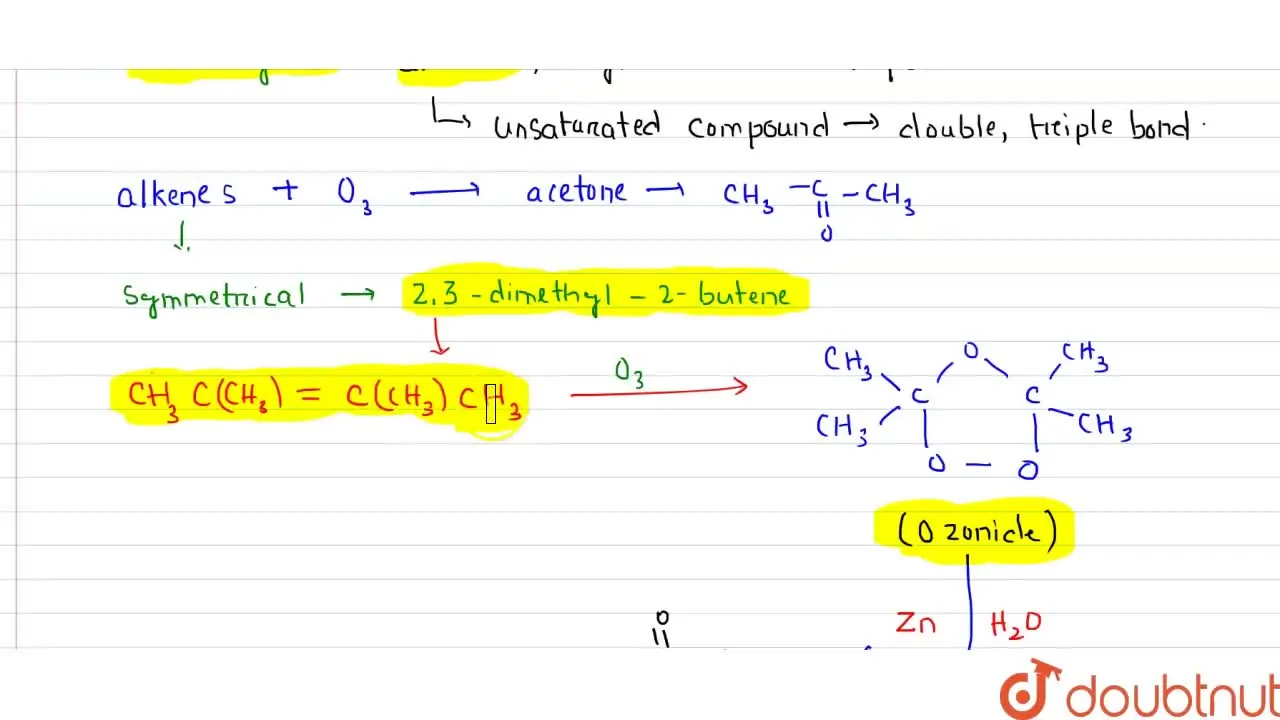 unsaturated compound → double, triple bond.
alkenes + O₃ → acetone → CH₃ – C – CH₃
||
O
↓
symmetrical → 2,3 - dimethyl - 2 - butene
CH₃ C(CH₃) = C(CH₃) CH₃ O₃ →
CH₃ O CH₃
C C
CH₃ CH₃
O – O
(Ozonide)
O
||
Zn H₂O
doubtnut